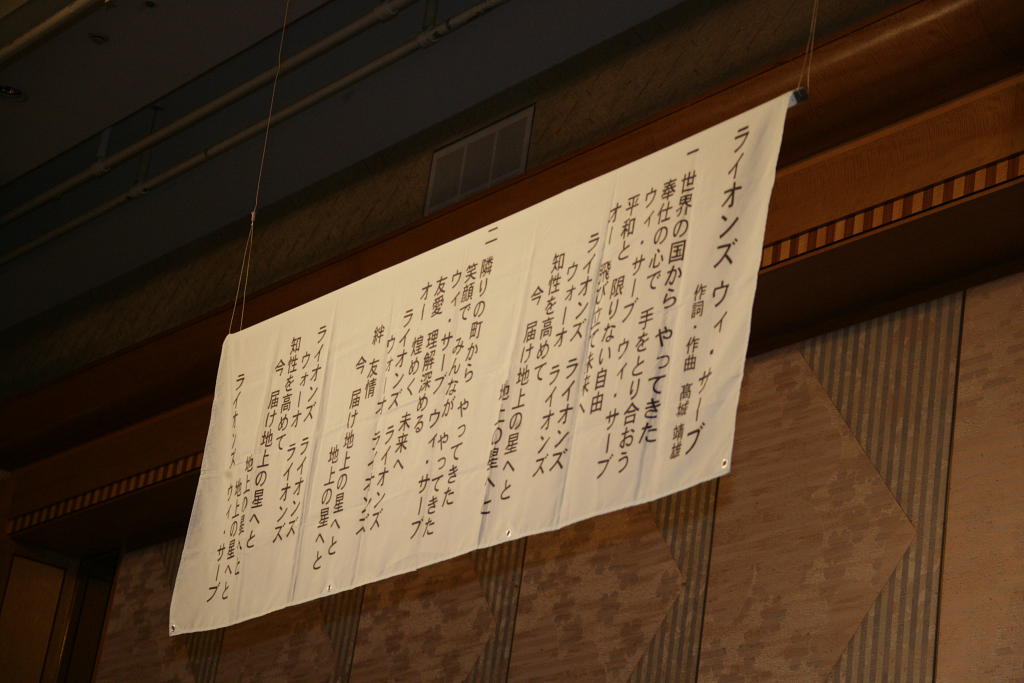 ライオンズ ウィ・サーブ
作詞・作曲 髙城 靖雄
一 世界の国から やってきた
奉仕の心で 手をとり合おう
ウィ・サーブ ウィ・サーブ
平和と 限りない自由
オー 飛び立て未来へ
ライオンズ ライオンズ
ウォーオ ライオンズ
知性を高めて
今 届け地上の星へと
地上の星へと
二 隣りの町から やってきた
笑顔で みんなが やってきた
ウィ・サーブ ウィ・サーブ
友愛 理解深める
オー 煌めく 未来へ
ライオンズ ライオンズ
ウォーオ ライオンズ
絆 友情
今 届け地上の星へと
地上の星へと
ライオンズ ライオンズ
ウォーオ ライオンズ
知性を高めて
今 届け地上の星へと
地上の星へと
地上の星へと
ライオンズ ウィ・サーブ